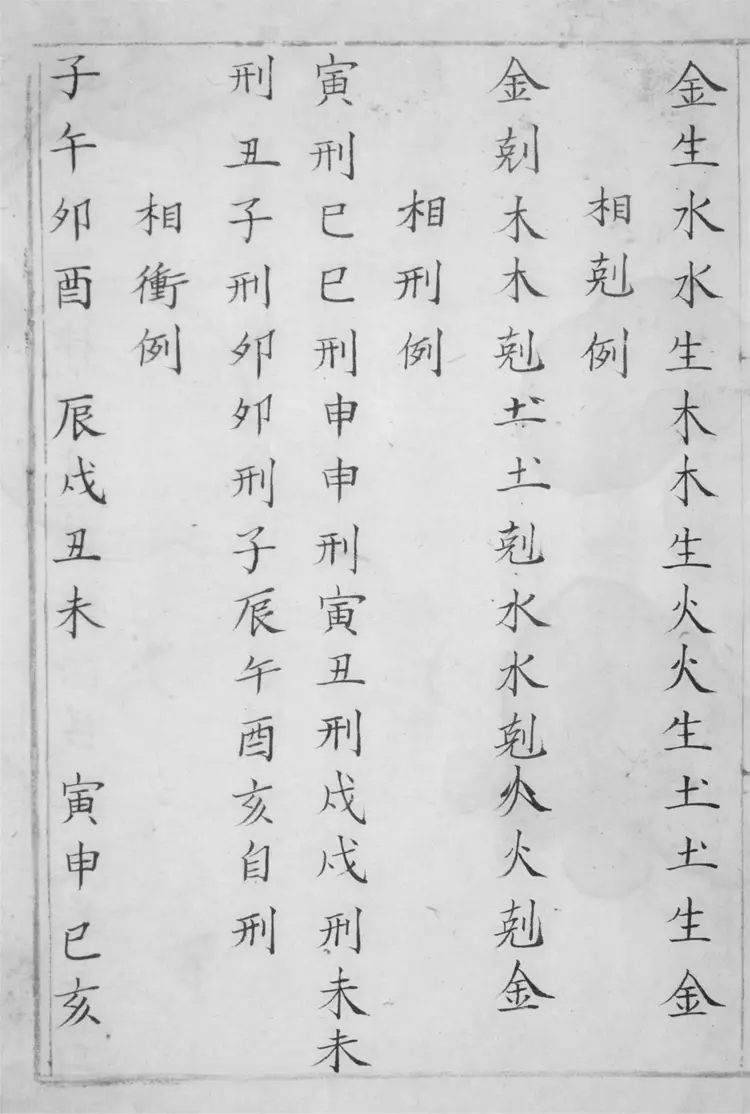 金生水水生木木生火火生土土生金
相剋例
金剋木木剋土土剋水水剋火火剋金
相刑例
寅刑巳巳刑申申刑寅丑刑戌戌刑未未
刑丑子刑卯卯刑子辰午酉亥自刑
相衝例
子午卯酉 辰戌丑未 寅申巳亥